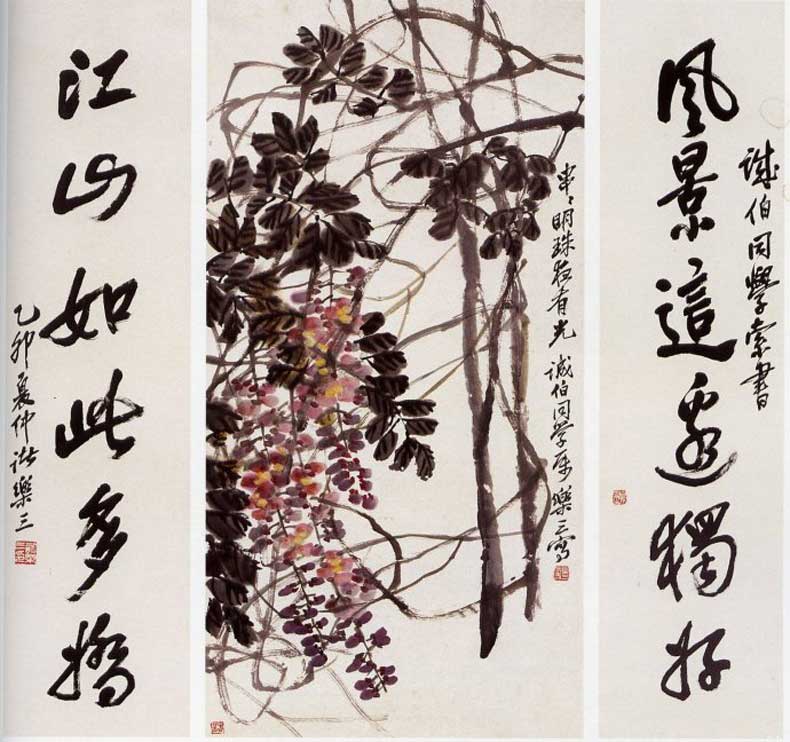 誠伯同學索書
風景這邊獨好
串々明珠夜有光 诚伯同学属 樂三寫
江山如此多嬌
乙卯夏仲诸樂三